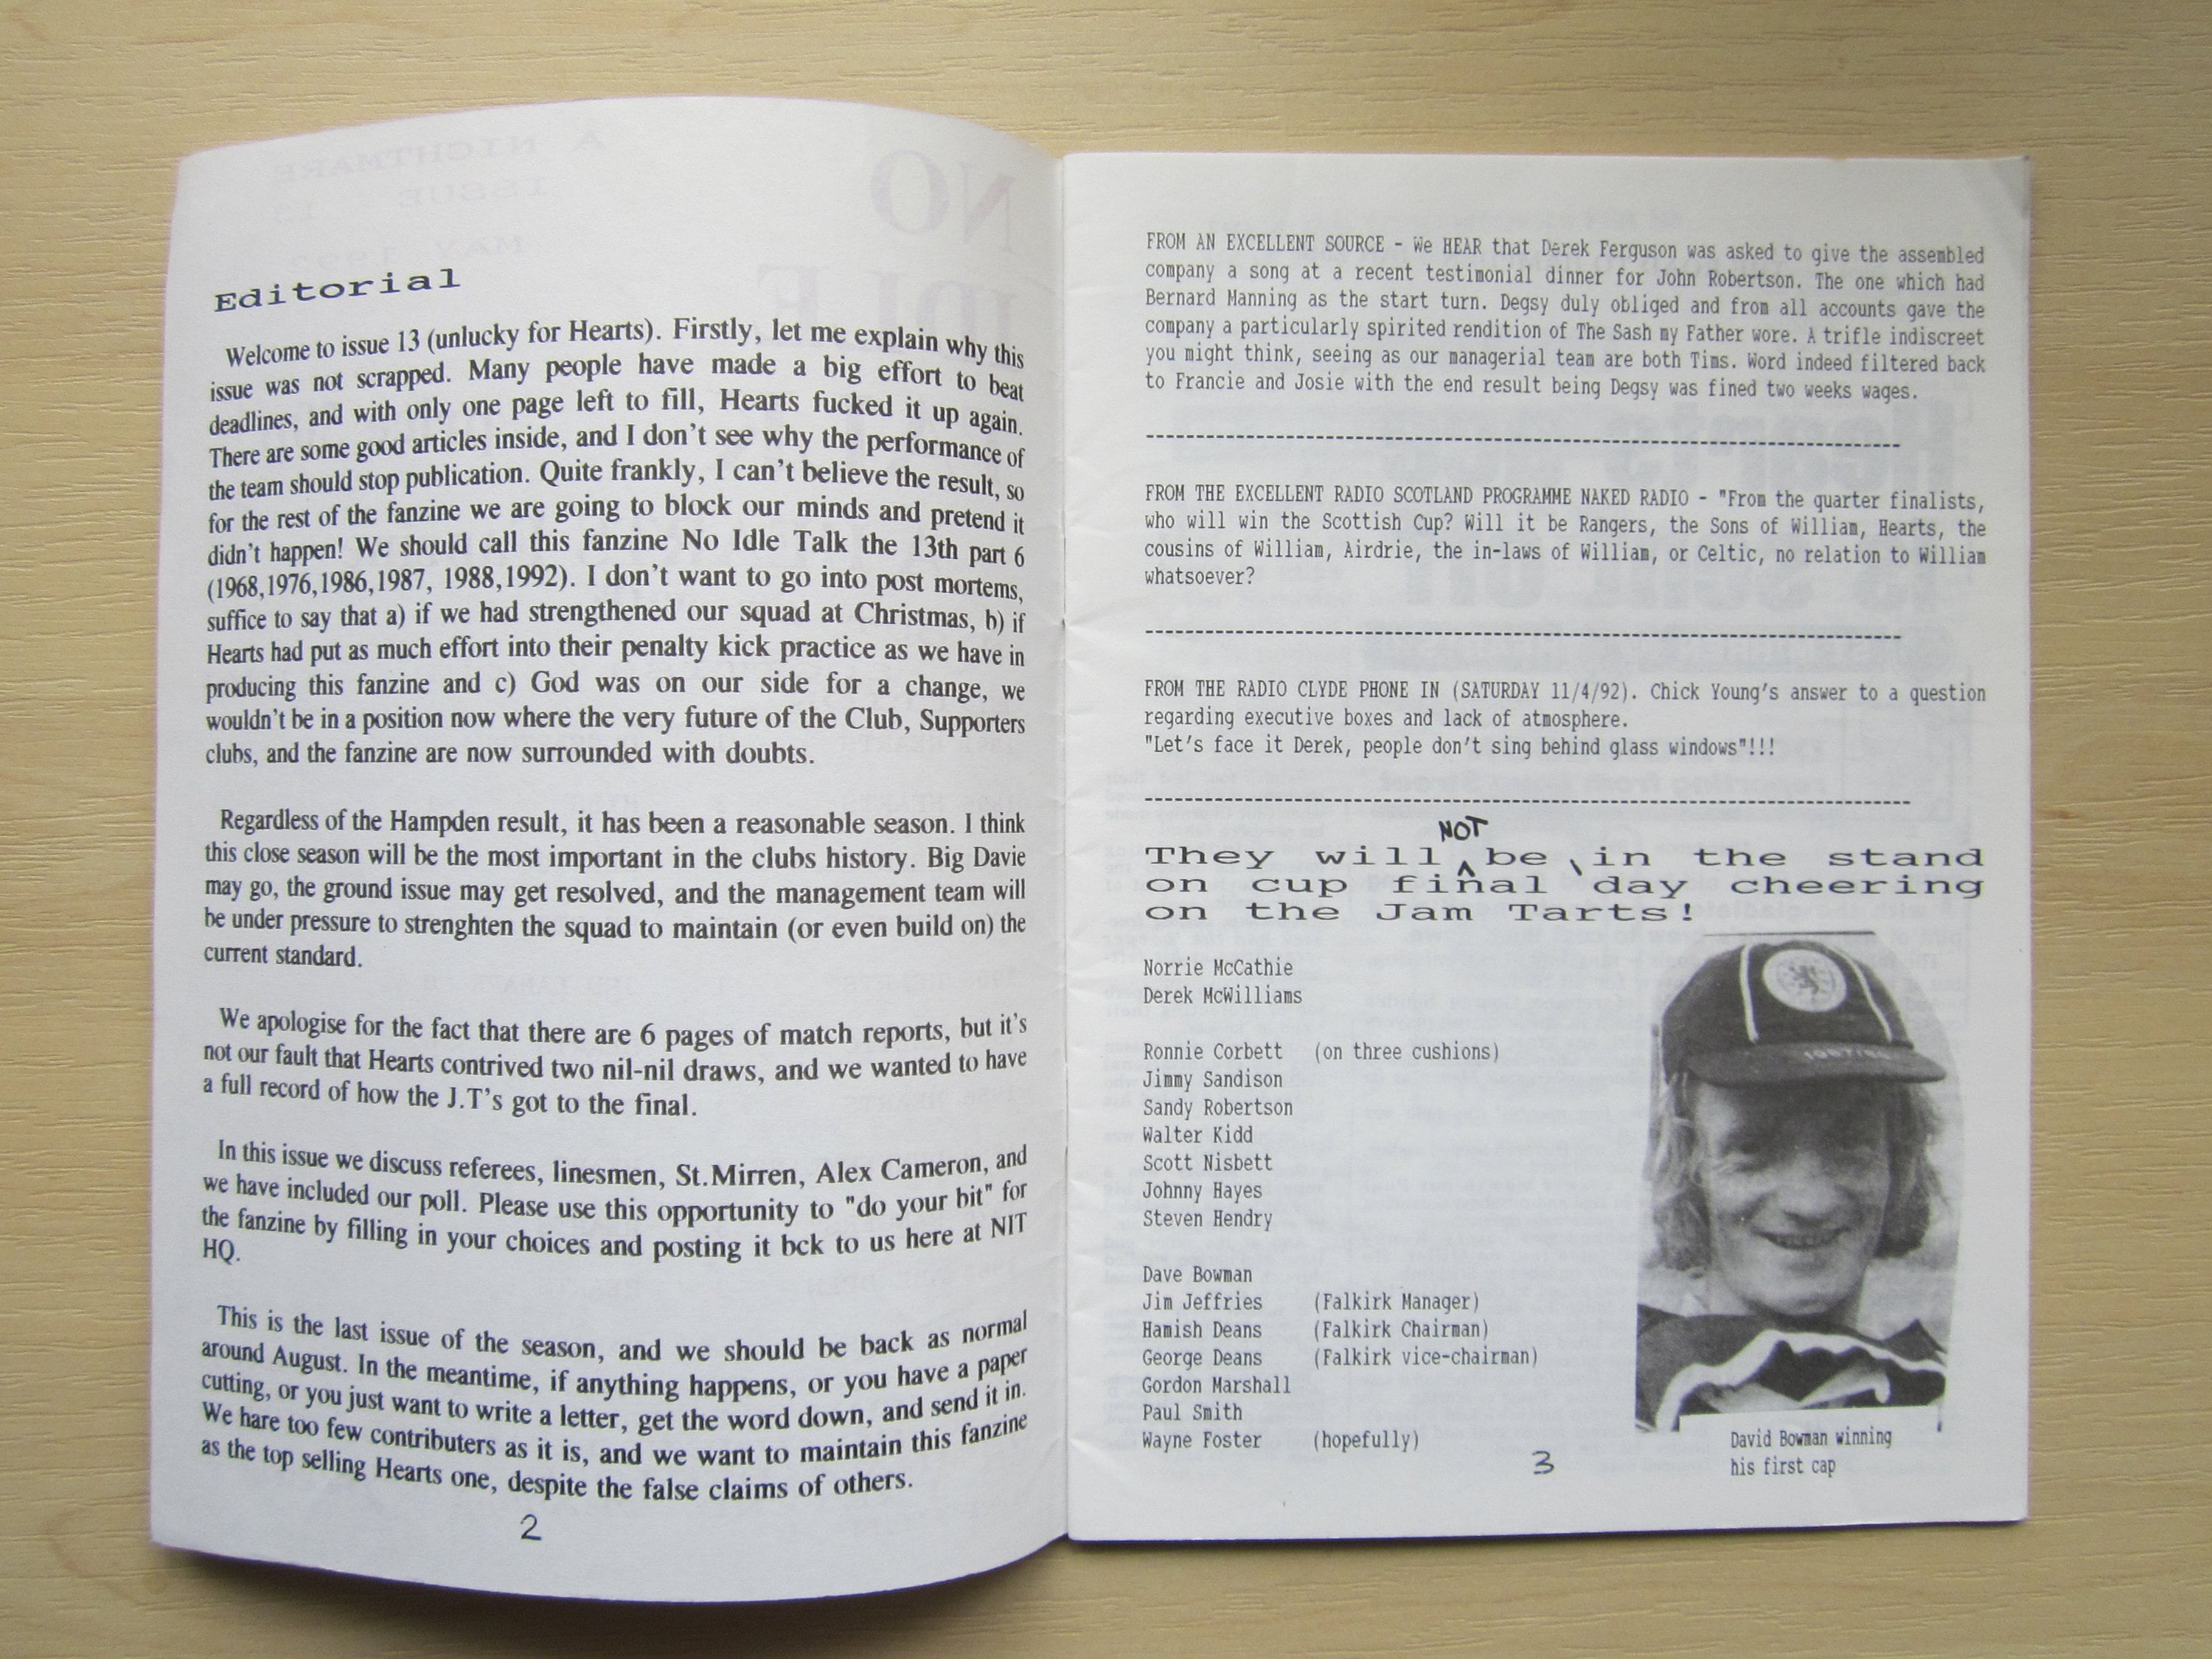 Editorial
Welcome to issue 13 (unlucky for Hearts). Firstly, let me explain why this
issue was not scrapped. Many people have made a big effort to beat
deadlines, and with only one page left to fill, Hearts fucked it up again.
There are some good articles inside, and I don't see why the performance of
the team should stop publication. Quite frankly, I can't believe the result, so
for the rest of the fanzine we are going to block our minds and pretend it
didn't happen! We should call this fanzine No Idle Talk the 13th part 6
(1968,1976,1986,1987, 1988,1992). I don't want to go into post mortems,
suffice to say that a) if we had strengthened our squad at Christmas, b) if
Hearts had put as much effort into their penalty kick practice as we have in
producing this fanzine and c) God was on our side for a change, we
wouldn't be in a position now where the very future of the Club, Supporters
clubs, and the fanzine are now surrounded with doubts.
Regardless of the Hampden result, it has been a reasonable season. I think
this close season will be the most important in the clubs history. Big Davie
may go, the ground issue may get resolved, and the management team will
be under pressure to strenghten the squad to maintain (or even build on) the
current standard.
We apologise for the fact that there are 6 pages of match reports, but it's
not our fault that Hearts contrived two nil-nil draws, and we wanted to have
a full record of how the J.T's got to the final.
In this issue we discuss referees, linesmen, St.Mirren, Alex Cameron, and
we have included our poll. Please use this opportunity to "do your bit" for
the fanzine by filling in your choices and posting it bck to us here at NIT
HQ.
This is the last issue of the season, and we should be back as normal
around August. In the meantime, if anything happens, or you have a paper
cutting, or you just want to write a letter, get the word down, and send it in.
We hare too few contributers as it is, and we want to maintain this fanzine
as the top selling Hearts one, despite the false claims of others.
2
FROM AN EXCELLENT SOURCE - We HEAR that Derek Ferguson was asked to give the assembled
company a song at a recent testimonial dinner for John Robertson. The one which had
Bernard Manning as the start turn. Degsy duly obliged and from all accounts gave the
company a particularly spirited rendition of The Sash my Father wore. A trifle indiscreet
you might think, seeing as our managerial team are both Tims. Word indeed filtered back
to Francie and Josie with the end result being Degsy was fined two weeks wages.
FROM THE EXCELLENT RADIO SCOTLAND PROGRAMME NAKED RADIO - "From the quarter finalists,
who will win the Scottish Cup? Will it be Rangers, the Sons of William, Hearts, the
cousins of William, Airdrie, the in-laws of William, or Celtic, no relation to William
whatsoever?
FROM THE RADIO CLYDE PHONE IN (SATURDAY 11/4/92). Chick Young's answer to a question
regarding executive boxes and lack of atmosphere.
"Let's face it Derek, people don't sing behind glass windows"!!!
NOT
They will be in the stand
on cup final day cheering
on the Jam Tarts!
Norrie McCathie
Derek McWilliams
Ronnie Corbett (on three cushions)
Jimmy Sandison
Sandy Robertson
Walter Kidd
Scott Nisbett
Johnny Hayes
Steven Hendry
Dave Bowman
Jim Jeffries (Falkirk Manager)
Hamish Deans (Falkirk Chairman)
George Deans (Falkirk vice-chairman)
Gordon Marshall
Paul Smith
Wayne Foster (hopefully)
David Bowman winning
his first cap
3